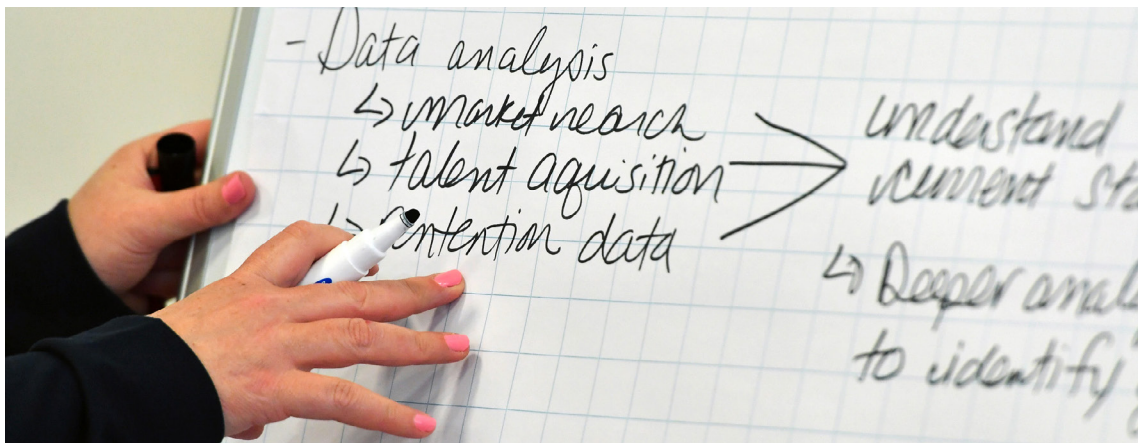 - Data analysis
↳ market
↳ talent aquisition
↳ data
understand
current sta
↳ Deeper anal
to identify